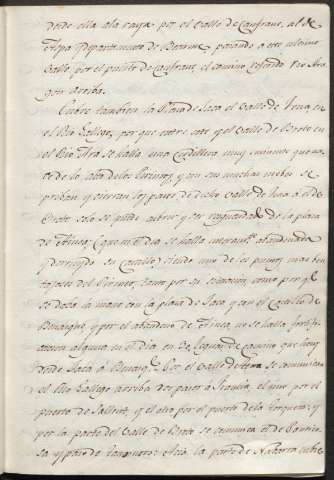 desde ella ala raya por el Valle de Canfranc, al de
Aspa y departamento de Bearne, pasando a este ultimo
Valle por el puerto de Canfranc, el camino referido Rio Ara-
gon arriba.
Cubre tambien la Plaza de Jaca el Valle de Tena en
el Rio Gallego, por que entre este y el Valle de Broto en
el Rio Ara se halla una Cordillera muy eminente que na-
ce de la alta de los Pirineos, y con sus muchas nieves se
y cierran los pasos de dicho Valle de Tena a el de
Broto solo se puede cubrir y ser resguardado de la plaza
de Ainsa (que en el dia se halla enteramte. abandonada
y destruido su Castillo) siendo uno de los puntos mas ben-
tajosos del Pirineo, tanto por su situacion como por qe.
se daba la mano con la plaza de Jaca y con el Castillo de
Benasque, y por el abandono de Ainsa, no se halla fortifi-
cacion alguna en el dia en 30 leguas de camino que hay
desde Jaca à Benasqe. Por el Valle de Tena se comunica
el Rio Gallego arriba dos pasos à Francia, el uno por el
puerto de Sallent, y el otro por el puerto de la Forqueta; y
por la parte del Valle de Broto se comunica el de
y paso de acia la parte de Navarra cubre